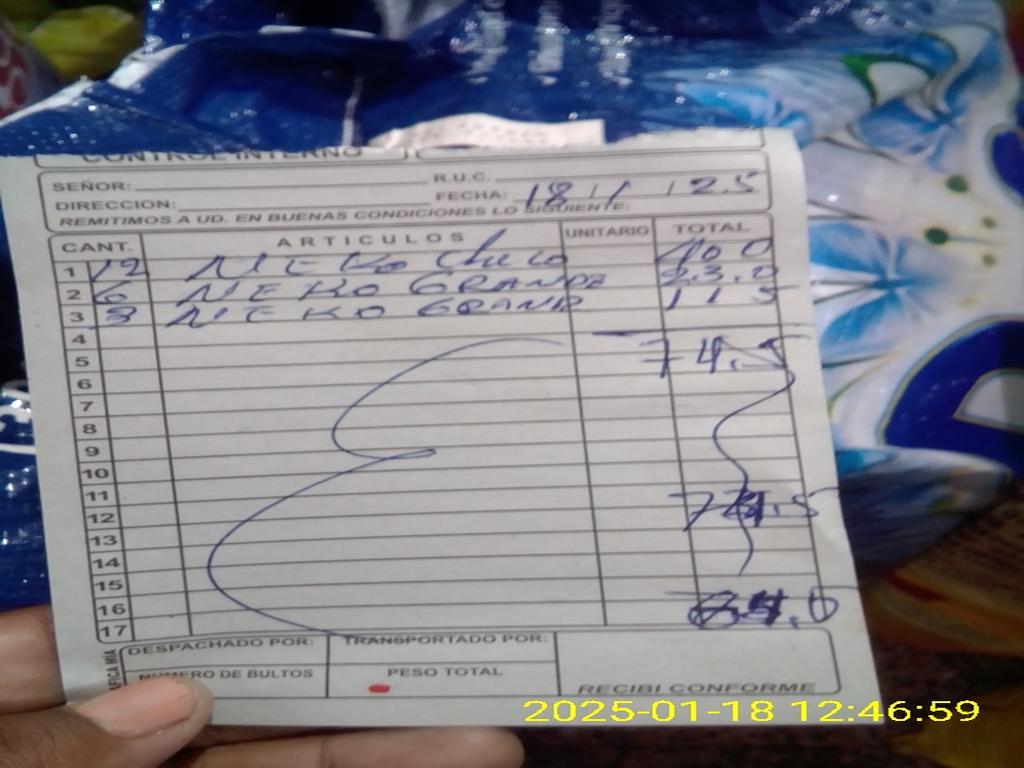 CONTROL INTERNO
SEÑOR: R.U.C.
DIRECCION: FECHA: 18 / 1 / 25
REMITIMOS A UD. EN BUENAS CONDICIONES LO SIGUIENTE:
CANT. ARTICULOS UNITARIO TOTAL
1 12 NEKO 400
2 6 NEKO GRANDE 23.0
3 3 NEKO GRANDE 115
4
5 74.5
6
7
8
9
10
11
12 74.5
13
14
15
16
17
DESPACHADO POR: TRANSPORTADO POR:
NUMERO DE BULTOS PESO TOTAL RECIBI CONFORME
2025-01-18 12:46:59